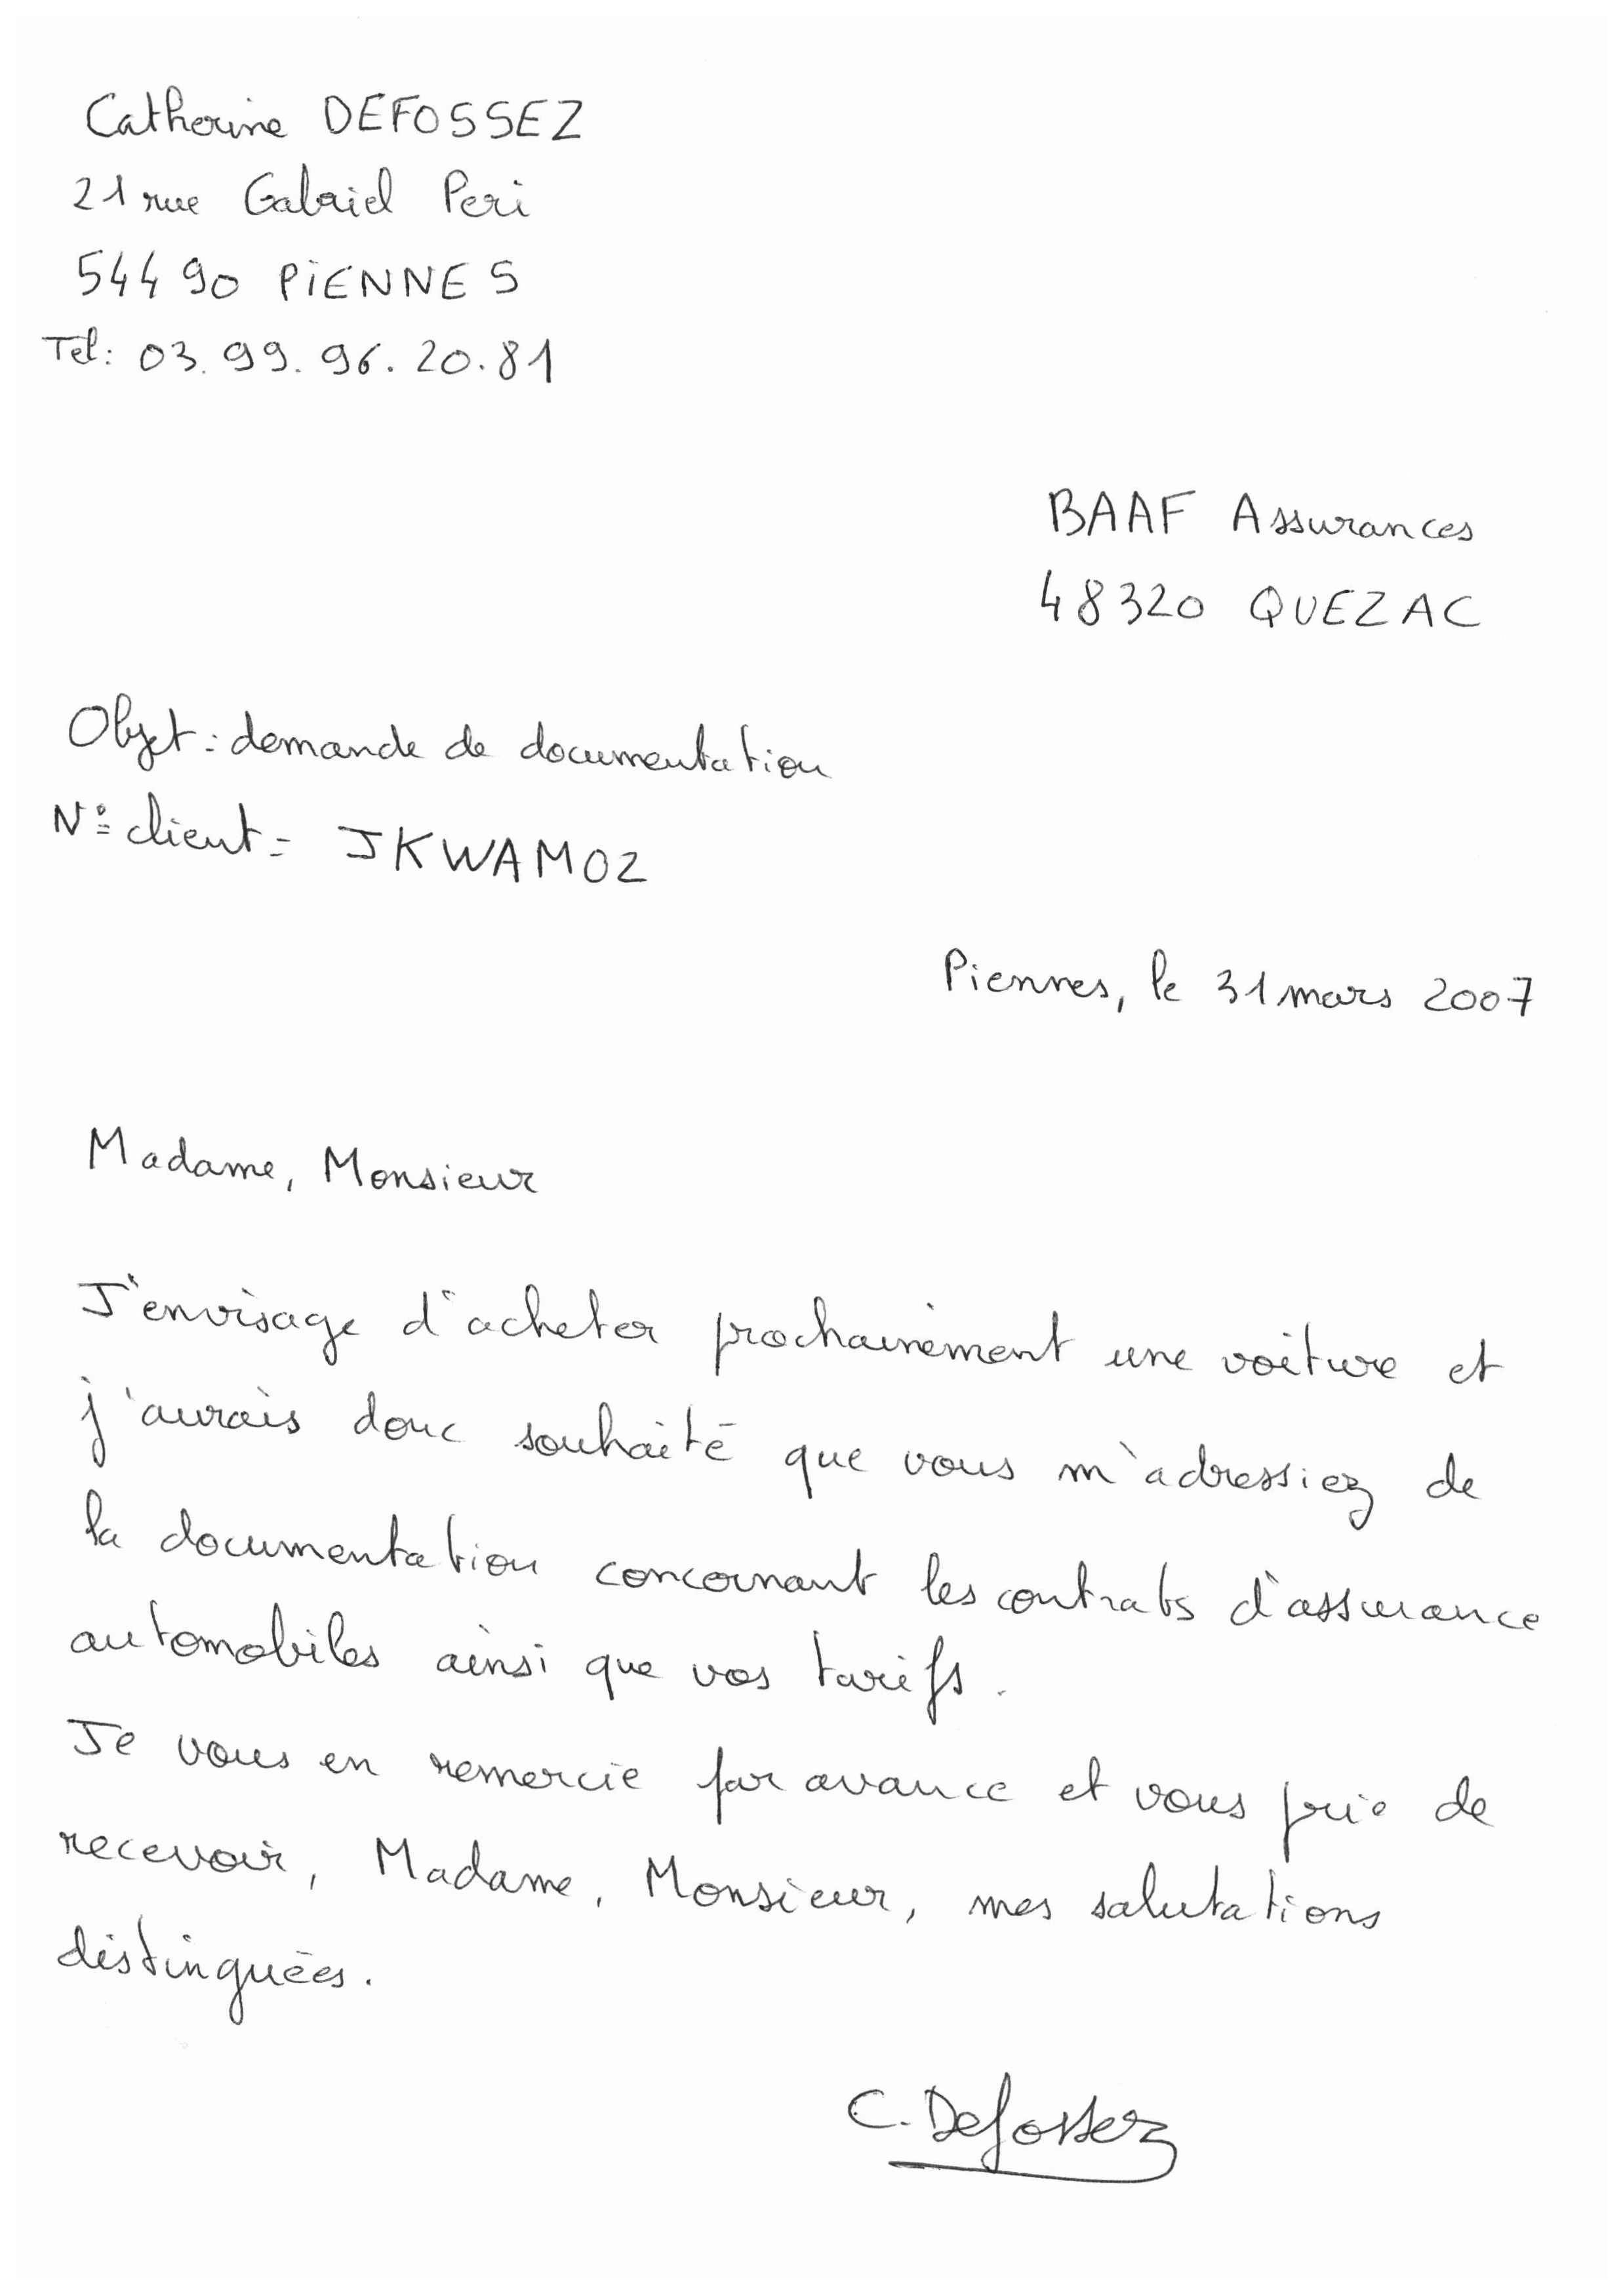 Catherine DEFOSSEZ
21 rue Gabriel Peri
54490 PIENNES
Tel: 03.99.96.20.81
BAAF Assurances
48320 QUEZAC
Objet: demande de documentation
N° client: JKWAM02
Piennes, le 31 mars 2007
Madame, Monsieur
J'envisage d'acheter prochainement une voiture et
j'aurais donc souhaité que vous m'adressiez de
la documentation concernant les contrats d'assurance
automobiles ainsi que vos tarifs.
Je vous en remercie par avance et vous prie de
recevoir, Madame, Monsieur, mes salutations
distinguées.
C. Defossez